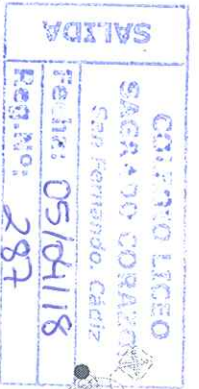 COLEGIO LICEO
SAGRADO CORAZÓN
San Fernando. Cádiz
Fecha: 05/04/18
Reg. No. 287
SALIDA